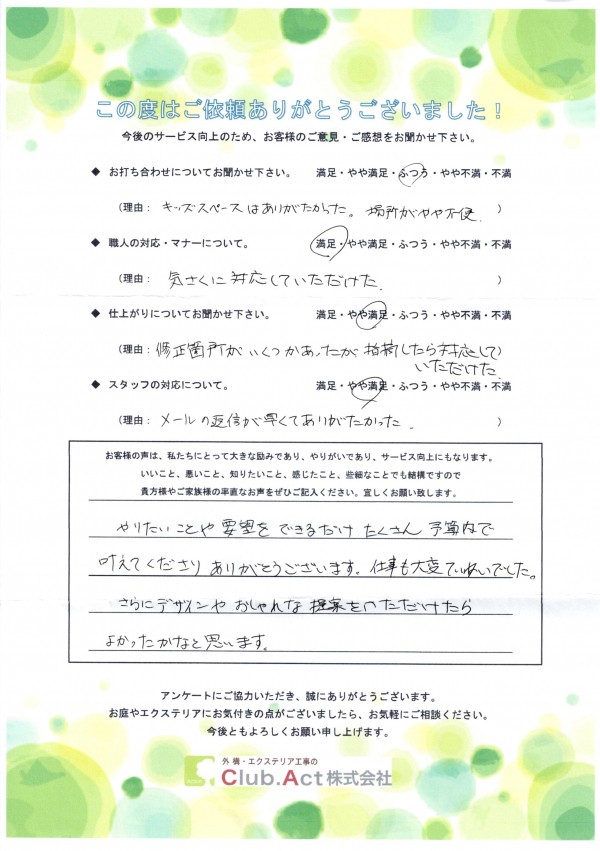 この度はご依頼ありがとうございました！
今後のサービス向上のため、お客様のご意見・ご感想をお聞かせ下さい。
◆ お打ち合わせについてお聞かせ下さい。 満足・やや満足・ふつう・やや不満・不満
（理由： キッズスペースはありがたかった。場所がやや不便。 ）
◆ 職人の対応・マナーについて。 満足・やや満足・ふつう・やや不満・不満
（理由： 気さくに対応していただけた。 ）
◆ 仕上がりについてお聞かせ下さい。 満足・やや満足・ふつう・やや不満・不満
（理由： 修正箇所がいくつかあったが指摘したら対応して ）
いただけた。
◆ スタッフの対応について。 満足・やや満足・ふつう・やや不満・不満
（理由： メールの返信が早くてありがたかった。 ）
お客様の声は、私たちにとって大きな励みであり、やりがいであり、サービス向上にもなります。
いいこと、悪いこと、知りたいこと、感じたこと、些細なことでも結構ですので
貴方様やご家族様の率直なお声をぜひご記入ください。宜しくお願い致します。
やりたいことや要望をできるだけたくさん予算内で
叶えてくださりありがとうございます。仕事も大変ていねいでした。
さらにデザインやおしゃれな提案をいただけたら
よかったかなと思います。
アンケートにご協力いただき、誠にありがとうございます。
お庭やエクステリアにお気付きの点がございましたら、お気軽にご相談ください。
今後ともよろしくお願い申し上げます。
外構・エクステリア工事の
Club.Act株式会社